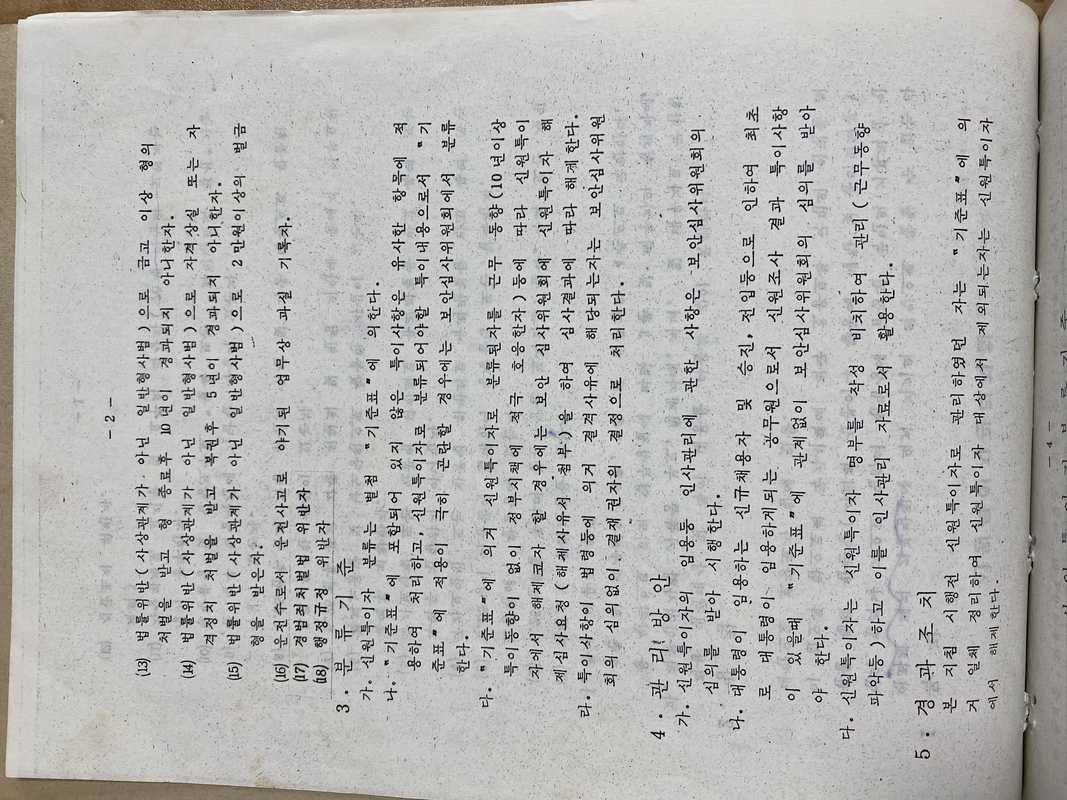 - 2 -
(13) 법률위반(사상관계가 아닌 일반형사범)으로 금고 이상 형의
처벌을 받고 형 종료후 10년이 경과되지 아니한자.
(14) 법률위반(사상관계가 아닌 일반형사범)으로 자격상실 또는 자
격정지 처벌을 받고 복권후 5년이 경과되지 아니한자.
(15) 법률위반(사상관계가 아닌 일반형사범)으로 2만원이상의 벌금
형을 받은자.
(16) 운전수로서 운전사고로 야기된 업무상 과실 기록자.
(17) 경범죄처벌법 위반자
(18) 행정규정 위반자
3. 분 류 기 준
가. 신원특이자 분류는 별첨 "기준표"에 의한다.
나. "기준표"에 포함되어 있지 않은 특이사항은 유사한 항목에 적
용하여 처리하고, 신원특이자로 분류되어야할 특이내용으로서 "기
준표"에 적용이 극히 곤란할 경우에는 보안심사위원회에서 분류
한다.
다. "기준표"에 의거 신원특이자로 분류된자를 근무 동향(10년이상
특이동향이 없이 정부시책에 적극 호응한자)등에 따라 신원특이
자에서 해제코자 할 경우에는 보안 심사위원회에 신원특이자 해
제심사요청(해제사유서 첨부)을 하여 심사결과에 따라 해제한다.
라. 특이사항이 법령등에 의거 결격사유에 해당되는자는 보안심사위원
회의 심의없이 결재권자의 결정으로 처리한다.
4. 관 리 방 안
가. 신원특이자의 임용등 인사관리에 관한 사항은 보안심사위원회의
심의를 받아 시행한다.
나. 대통령이 임용하는 신규채용자 및 승진, 전입등으로 인하여 최초
로 대통령이 임용하게되는 공무원으로서 신원조사 결과 특이사항
이 있을때 "기준표"에 관계없이 보안심사위원회의 심의를 받아
야 한다.
다. 신원특이자는 신원특이자 명부를 작성 비치하여 관리(근무동향
파악등)하고 이를 인사관리 자료로서 활용한다.
5. 경 과 조 치
본 지침 시행전 신원특이자로 관리하였던 자는 "기준표"에 의
거 일체 정리하여 신원특이자 대상에서 제외되는자는 신원특이자
에서 해제한다.